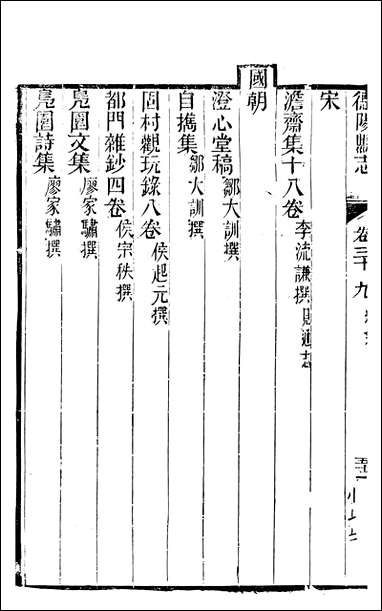 德陽縣志 卷三十九
宋
澹齋集十八卷 李流謙撰見通志
國朝
澄心堂稿 鄒大訓撰
自擕集 鄒大訓撰
固村觀玩錄八卷 侯起元撰
都門雜鈔四卷 侯宗秩撰
鳧園文集 廖家驌撰
鳧園詩集 廖家驌撰